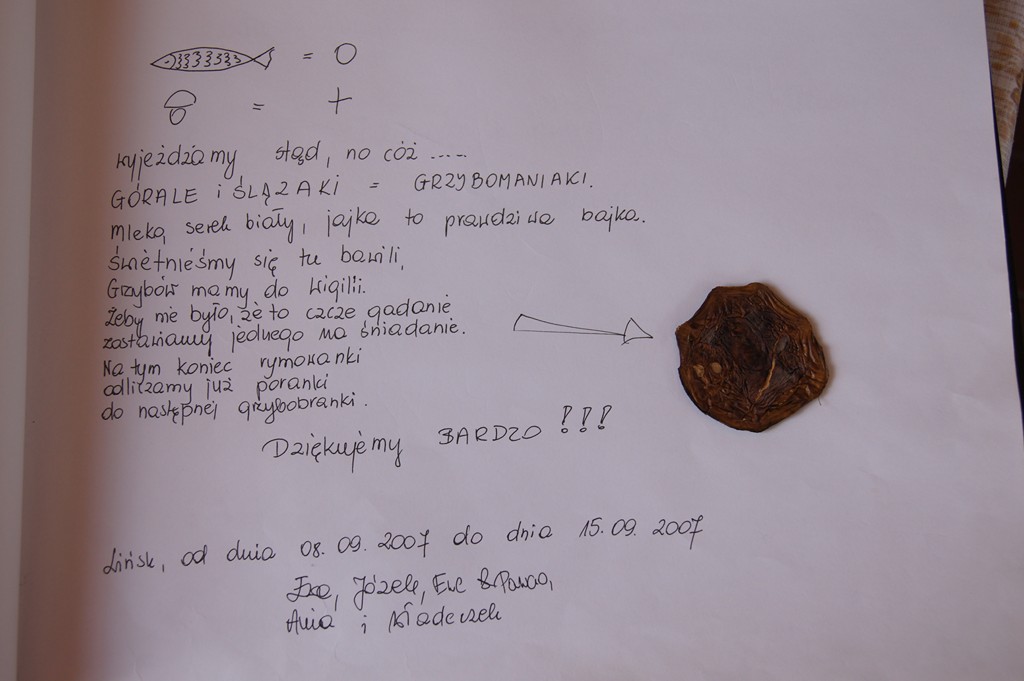 = 0
= +
wyjeżdżamy stąd, no cóż .....
GÓRALE i ŚLĄZAKI = GRZYBOMANIAKI.
Mleko, serek biały, jajka to prawdziwa bajka.
Świetnieśmy się tu bawili,
Grzybów mamy do wigilii.
Żeby nie było, że to czcze gadanie
zostawiamy jednego na śniadanie.
Na tym koniec rymowanki
odliczamy już poranki
do następnej grzybobranki.
Dziękujemy BARDZO !!!
Lińsk, od dnia 08.09.2007 do dnia 15.09.2007
Józek,
Ania i Władeczek